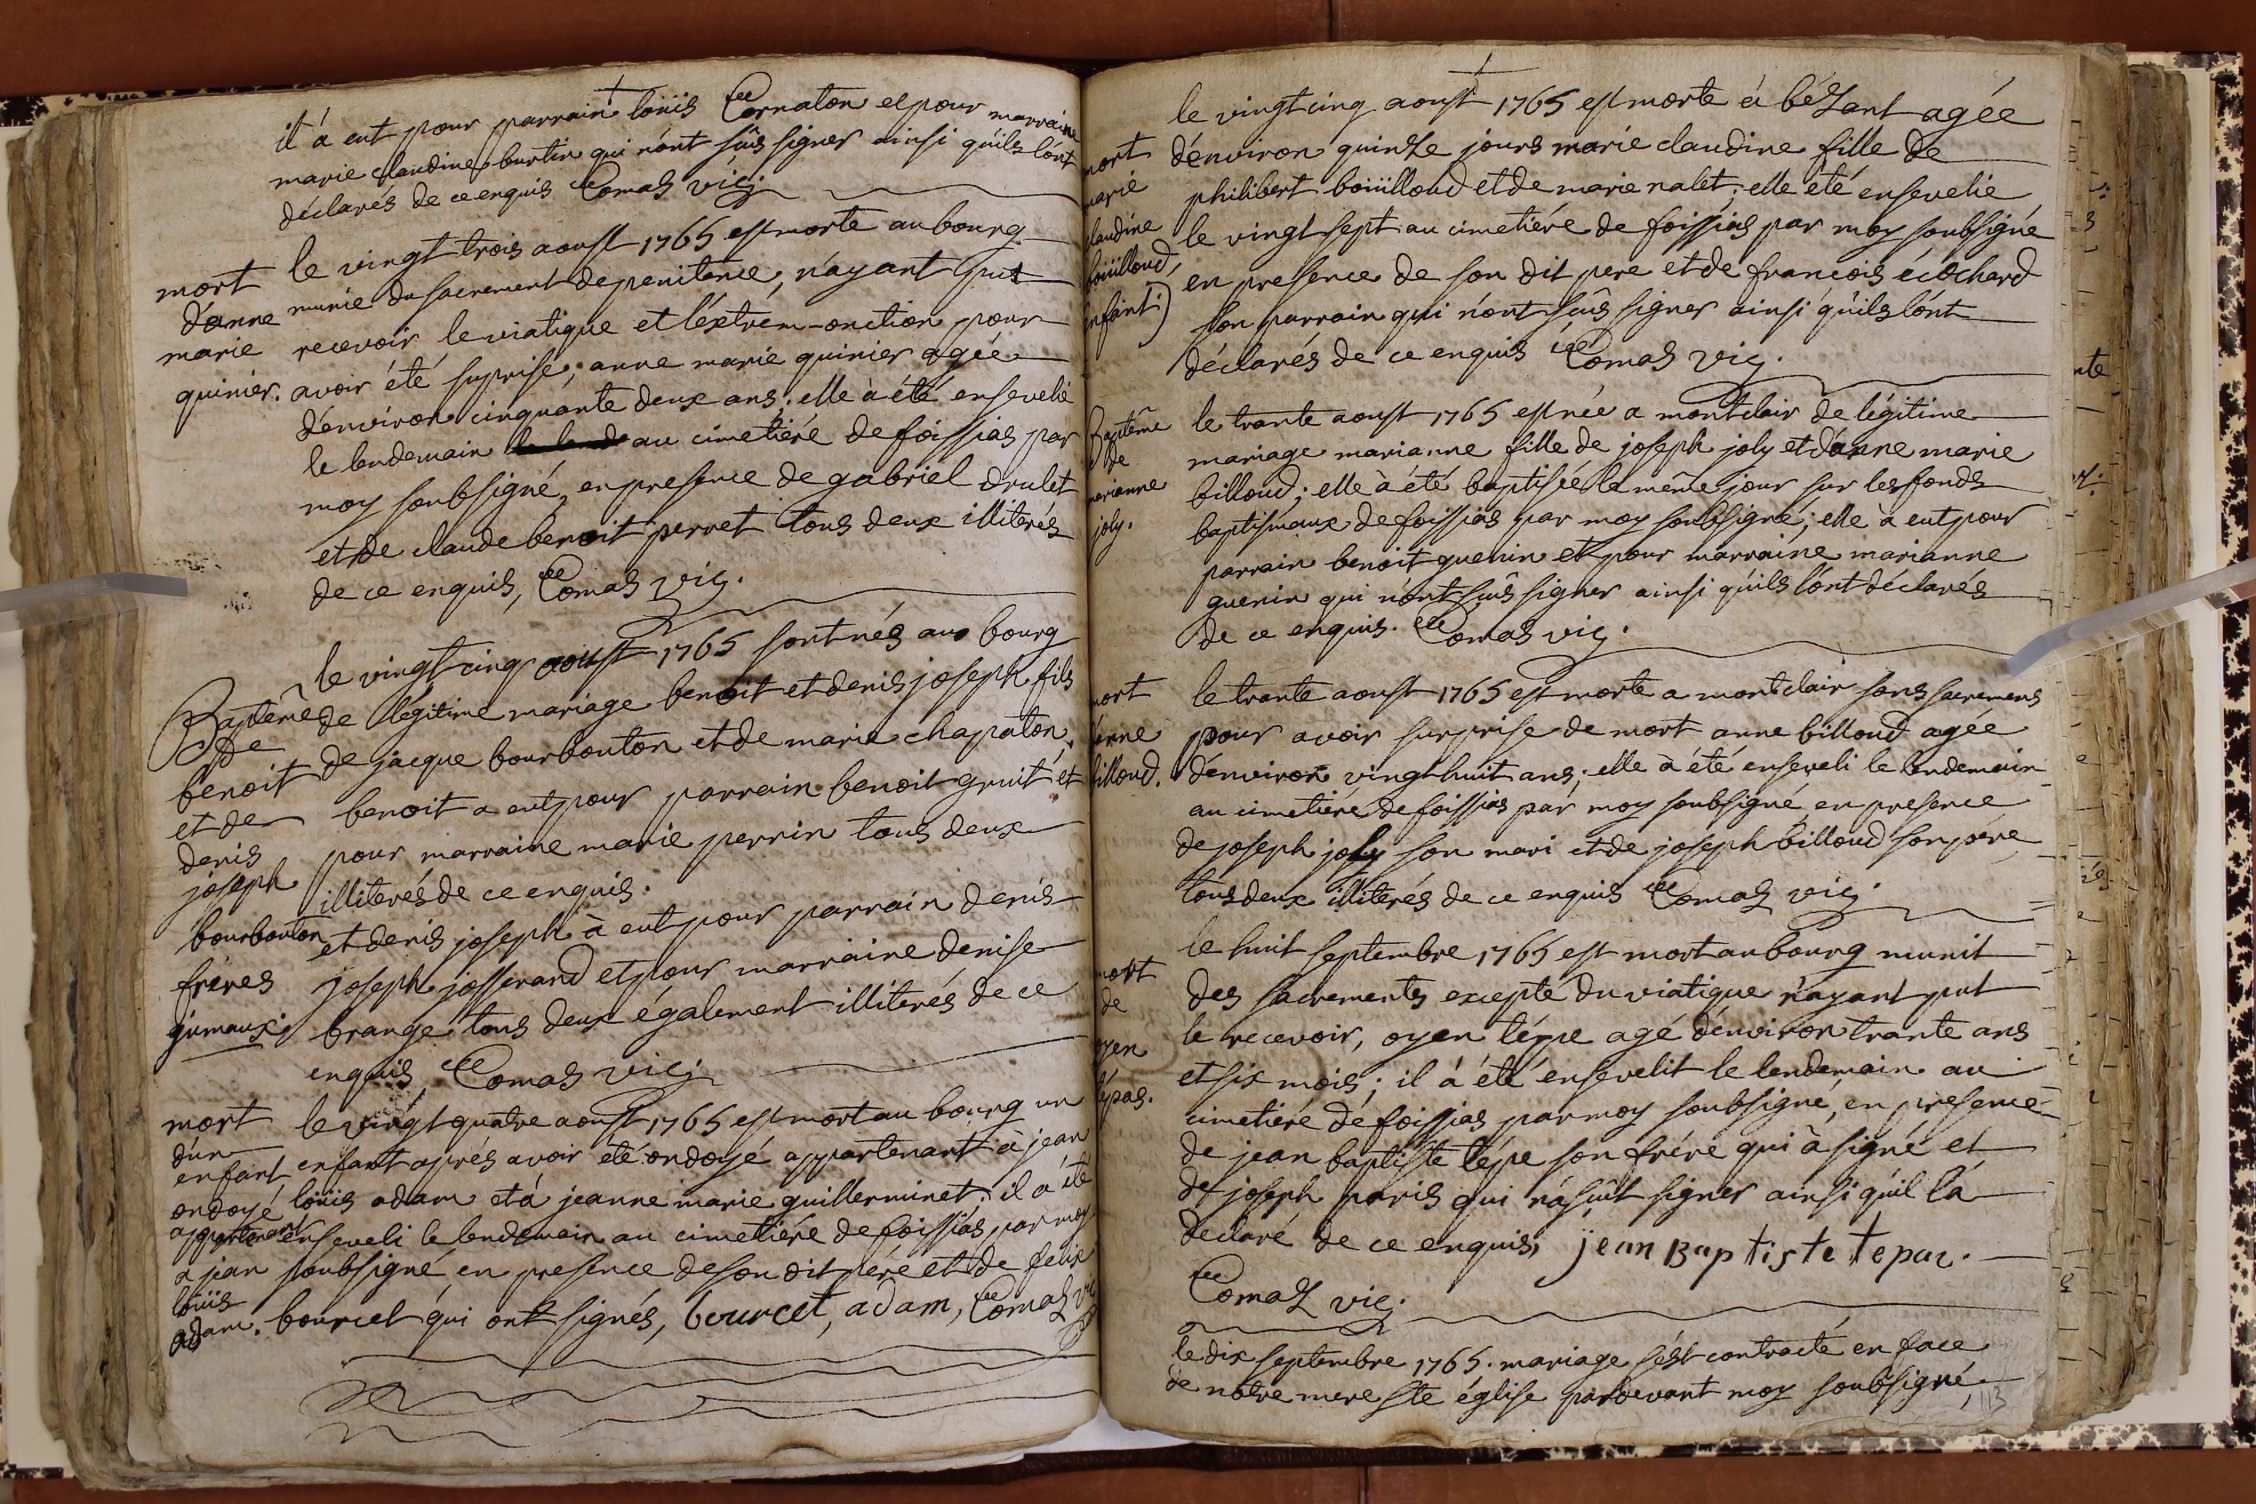 il á eut pour parrain loüis Cornaton et pour marraine
marie claudine burtin qui n'ont sûs signer ainsi quils l'ont
déclarés de ce enquis Comas vic.
mort
d'anne
marie
quinier.
le vingt trois aoust 1765 est morte au bourg
munie du sacrement de penitence, n'ayant put
recevoir le viatique et l'extrem-onction pour
avoir été suprise, anne marie quinier agée
d'environ cinquante deux ans; elle à été ensevelie
le lendemain au cimetiére de foissias par
moy soubsigné en presence de gabriel drulet
et de claude benoit perret tous deux illiterés
de ce enquis, Comas vic.
Baptême
de
benoit
et de
denis
joseph
bourbouton
fréres
jumaux.
le vingt cinq aoust 1765 sont nés au bourg
de légitime mariage benoit et denis joseph fils
de jacque bourbouton et de marie chapaton,
benoit a eut pour parrain benoit gruit et
pour marraine marie perrin tous deux
illiterés de ce enquis.
et denis joseph à eut pour parrain denis
joseph josserand et pour marraine denise
brange tous deux également illiterés de ce
enquis Comas vic.
mort
d'un
enfant
ondoyé
appartenant
a jean
loüis
adam.
le vingt quatre aoust 1765 est mort au bourg un
enfant aprés avoir été ondoyé appartenant à jean
loüis adam et á jeanne marie guillerminet; il a été
enseveli le lendemain au cimetiére de foissias, par moy
soubsigné en presence de son dit pére et de felix
bourcet qui ont signés, bourcet, adam, Comas vic
mort
marie
claudine
boüilloud,
enfant.)
le vingt cinq aoust 1765 est morte á bézant agée
d'environ quinze jours marie claudine fille de
philibert boüilloud et de marie nalet; elle été ensevelie
le vingt sept au cimetiére de foissias par moy soubsigné
en presence de son dit pere et de francois écochard
son parrain qui n'ont sûs signer ainsi qu'ils l'ont
déclarés de ce enquis Comas vic.
Baptême
de
marianne
joly.
le trante aoust 1765 est née a montclair de légitime
mariage marianne fille de joseph joly et d'anne marie
billoud; elle à été baptisée le même jour sur les fonds
baptismaux de foissias par moy soubsigné; elle à eut pour
parrain benoit guenin et pour marraine marianne
guenin qui n'ont sûs signer ainsi qu'ils l'ont déclarés
de ce enquis. Comas vic.
mort
d'anne
billoud.
le trante aoust 1765 est morte a montclair sans sacremens
pour avoir surprise de mort anne billoud agée
d'environ vingt huit ans; elle à été enseveli le lendemain
au cimetiére de foissias par moy soubsigné en presence
de joseph joly son mari et de joseph billoud son pére
tous deux illiterés de ce enquis Comas vic.
mort
de
oyen
tépas.
le huit septembre 1765 est mort au bourg munit
des sacrements excepté du viatique n'ayant put
le recevoir, oyen tépe agé d'environ trante ans
et six mois; il á été ensevelit le lendemain au
cimetiére de foissias par moy soubsigné, en presence
de jean baptiste tépe son frére qui à signé et
de joseph paris qui n'a sûit signer ainsi qu'il l'a
declaré de ce enquis, jean Baptiste tepas.
Comas vic.
le dix septembre 1765. mariage s'est contracté en face
de notre mere ste église pardevant moy soubsigné,
113